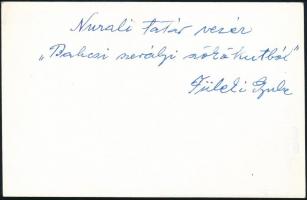 Nurali tatár vezér
„Bahcsi szerályi szökőkutból”
Füleki Gyula